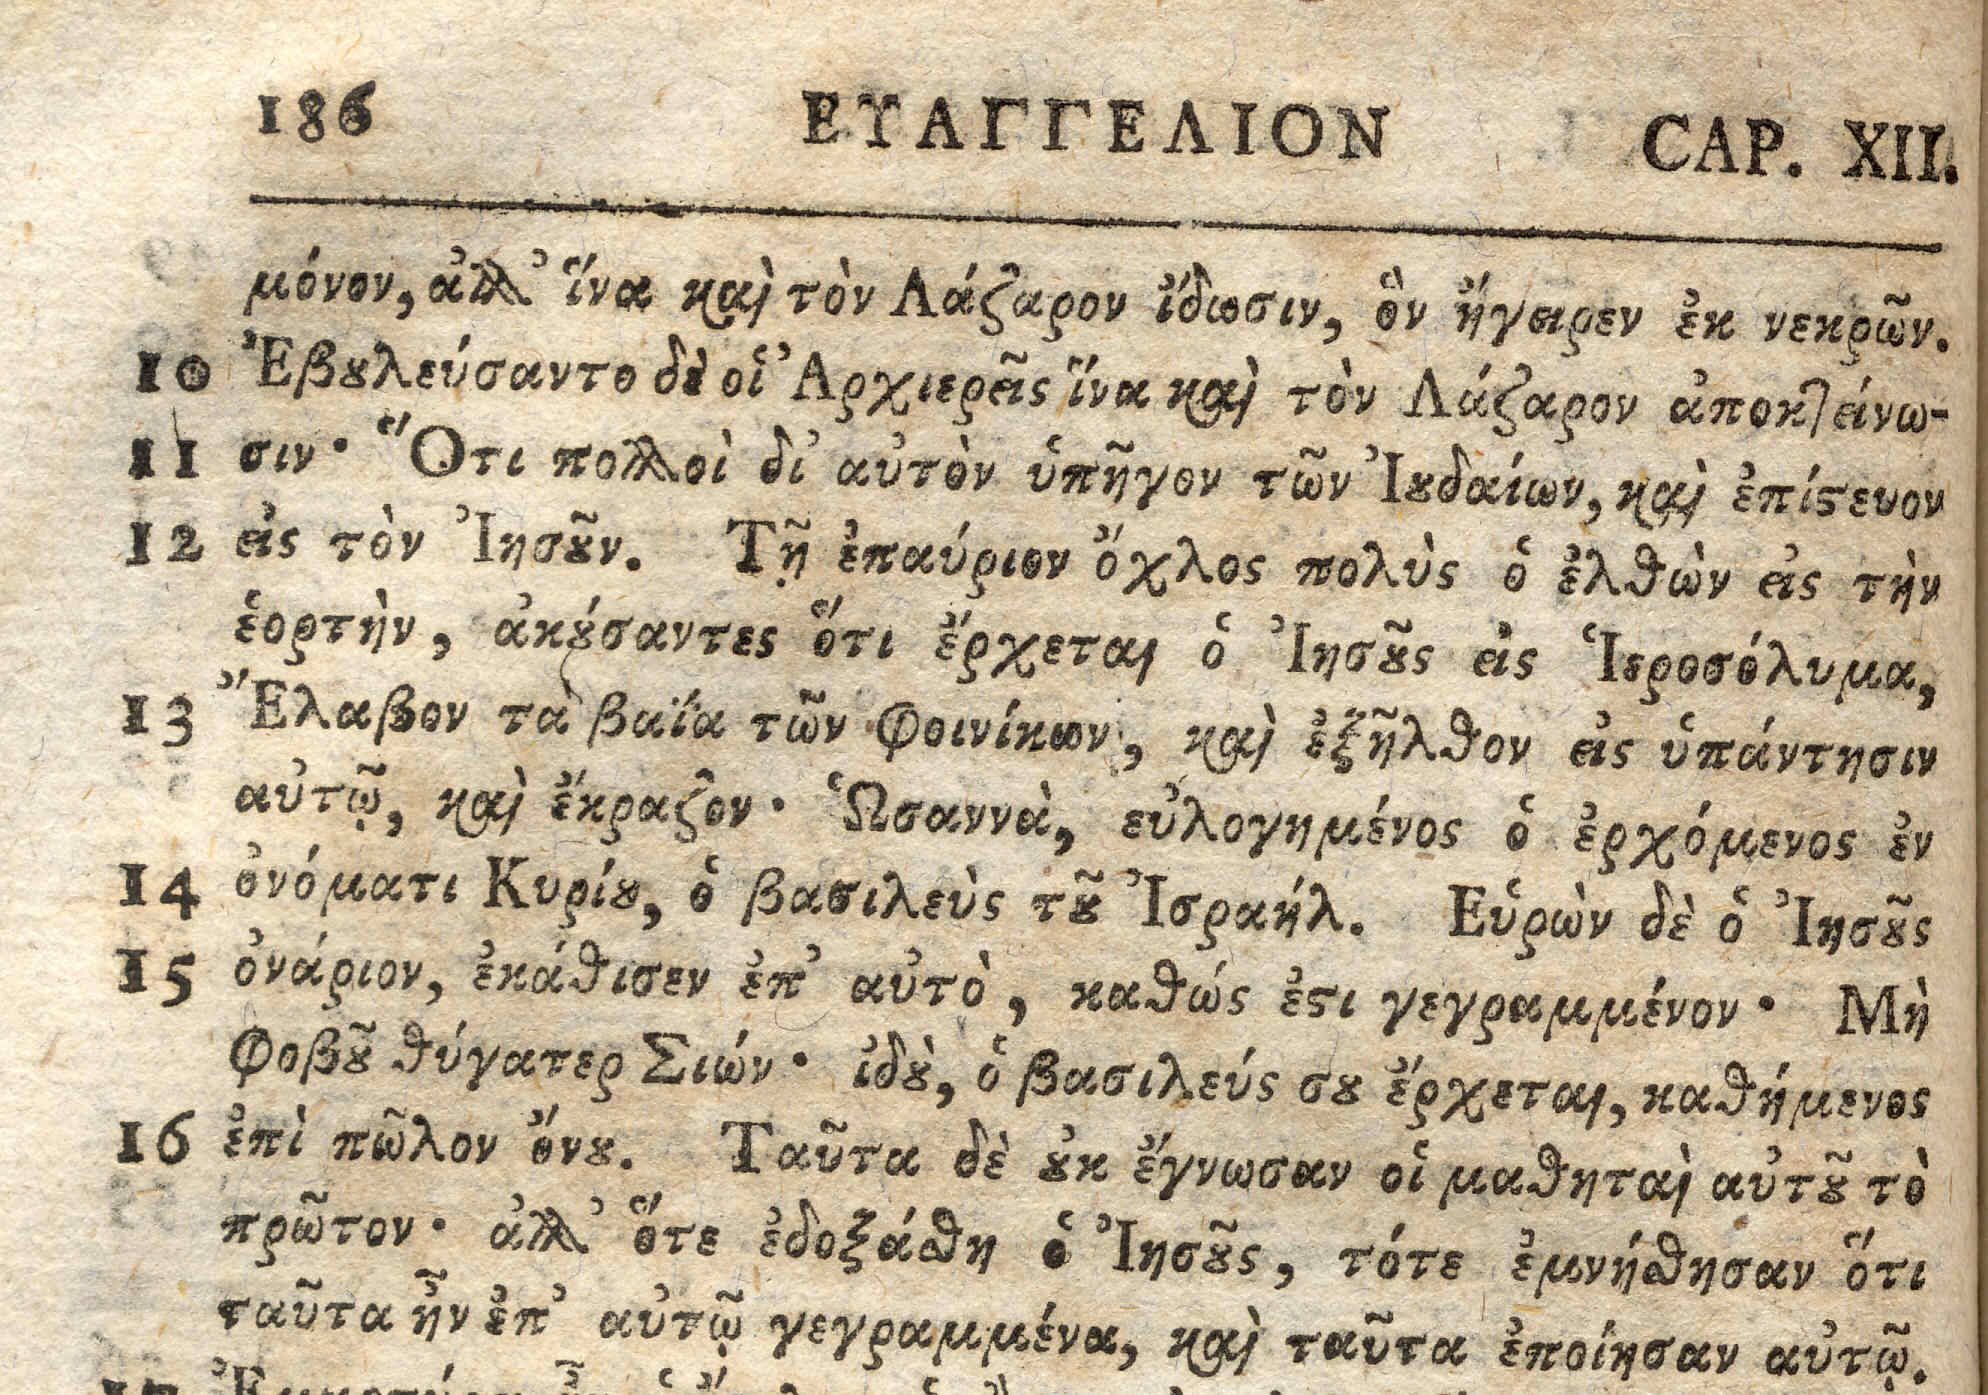 186 ΕΥΑΓΓΕΛΙΟΝ CAP. XII.
μόνον, ἀλλ᾽ ἵνα καὶ τὸν Λάζαρον ἴδωσιν, ὃν ἤγειρεν ἐκ νεκρῶν.
10 Ἐβȣλεύσαντο δὲ οἱ Ἀρχιερεῖς ἵνα καὶ τὸν Λάζαρον ἀποκτείνω-
11 σιν· Ὅτι πολλοὶ δι᾽ αὐτὸν ὑπῆγον τῶν Ἰȣδαίων, καὶ ἐπίϛευον
12 εἰς τὸν Ἰησȣ͂ν. Τῇ ἐπαύριον ὄχλος πολὺς ὁ ἐλθὼν εἰς τὴν
ἑορτὴν, ἀκȣ́σαντες ὅτι ἔρχεται ὁ Ἰησȣ͂ς εἰς Ἱεροσόλυμα,
13 Ἔλαβον τὰ βαΐα τῶν φοινίκων, καὶ ἐξῆλθον εἰς ὑπάντησιν
αὐτῷ, καὶ ἔκραζον· Ὡσαννὰ, εὐλογημένος ὁ ἐρχόμενος ἐν
14 ὀνόματι Κυρίȣ, ὁ βασιλεὺς τȣ͂ Ἰσραήλ. Εὑρὼν δὲ ὁ Ἰησȣ͂ς
15 ὀνάριον, ἐκάθισεν ἐπ᾽ αὐτὸ, καθώς ἐϛι γεγραμμένον· Μὴ
φοβȣ͂ θύγατερ Σιών· ἰδȣ̀, ὁ βασιλεύς σȣ ἔρχεται, καθήμενος
16 ἐπὶ πῶλον ὄνȣ. Ταῦτα δὲ ȣ̓κ ἔγνωσαν οἱ μαθηταὶ αὐτȣ͂ τὸ
πρῶτον· ἀλλ᾽ ὅτε ἐδοξάσθη ὁ Ἰησȣ͂ς, τότε ἐμνήσθησαν ὅτι
ταῦτα ἦν ἐπ᾽ αὐτῷ γεγραμμένα, καὶ ταῦτα ἐποίησαν αὐτῷ.